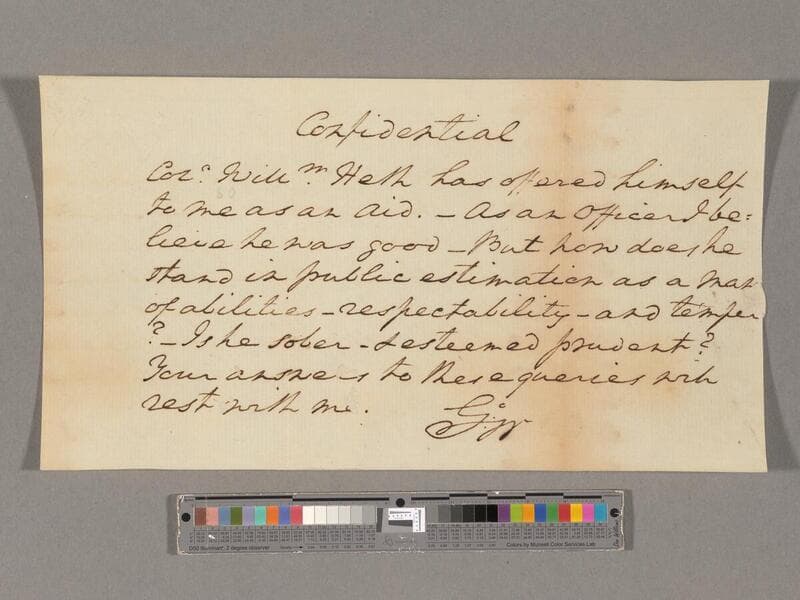 Confidential
Colo. Willm. Heth has offered himself
to me as an aid. - As an Officer I be=
lieve he was good - But how does he
stand in public estimation as a man
of abilities - respectability - and temper
? - Is he sober - & esteemed prudent?
Your answers to these queries will
rest with me.
G:W
D50 Illuminant, 2 degree observer
Colors by Munsell Color Services Lab